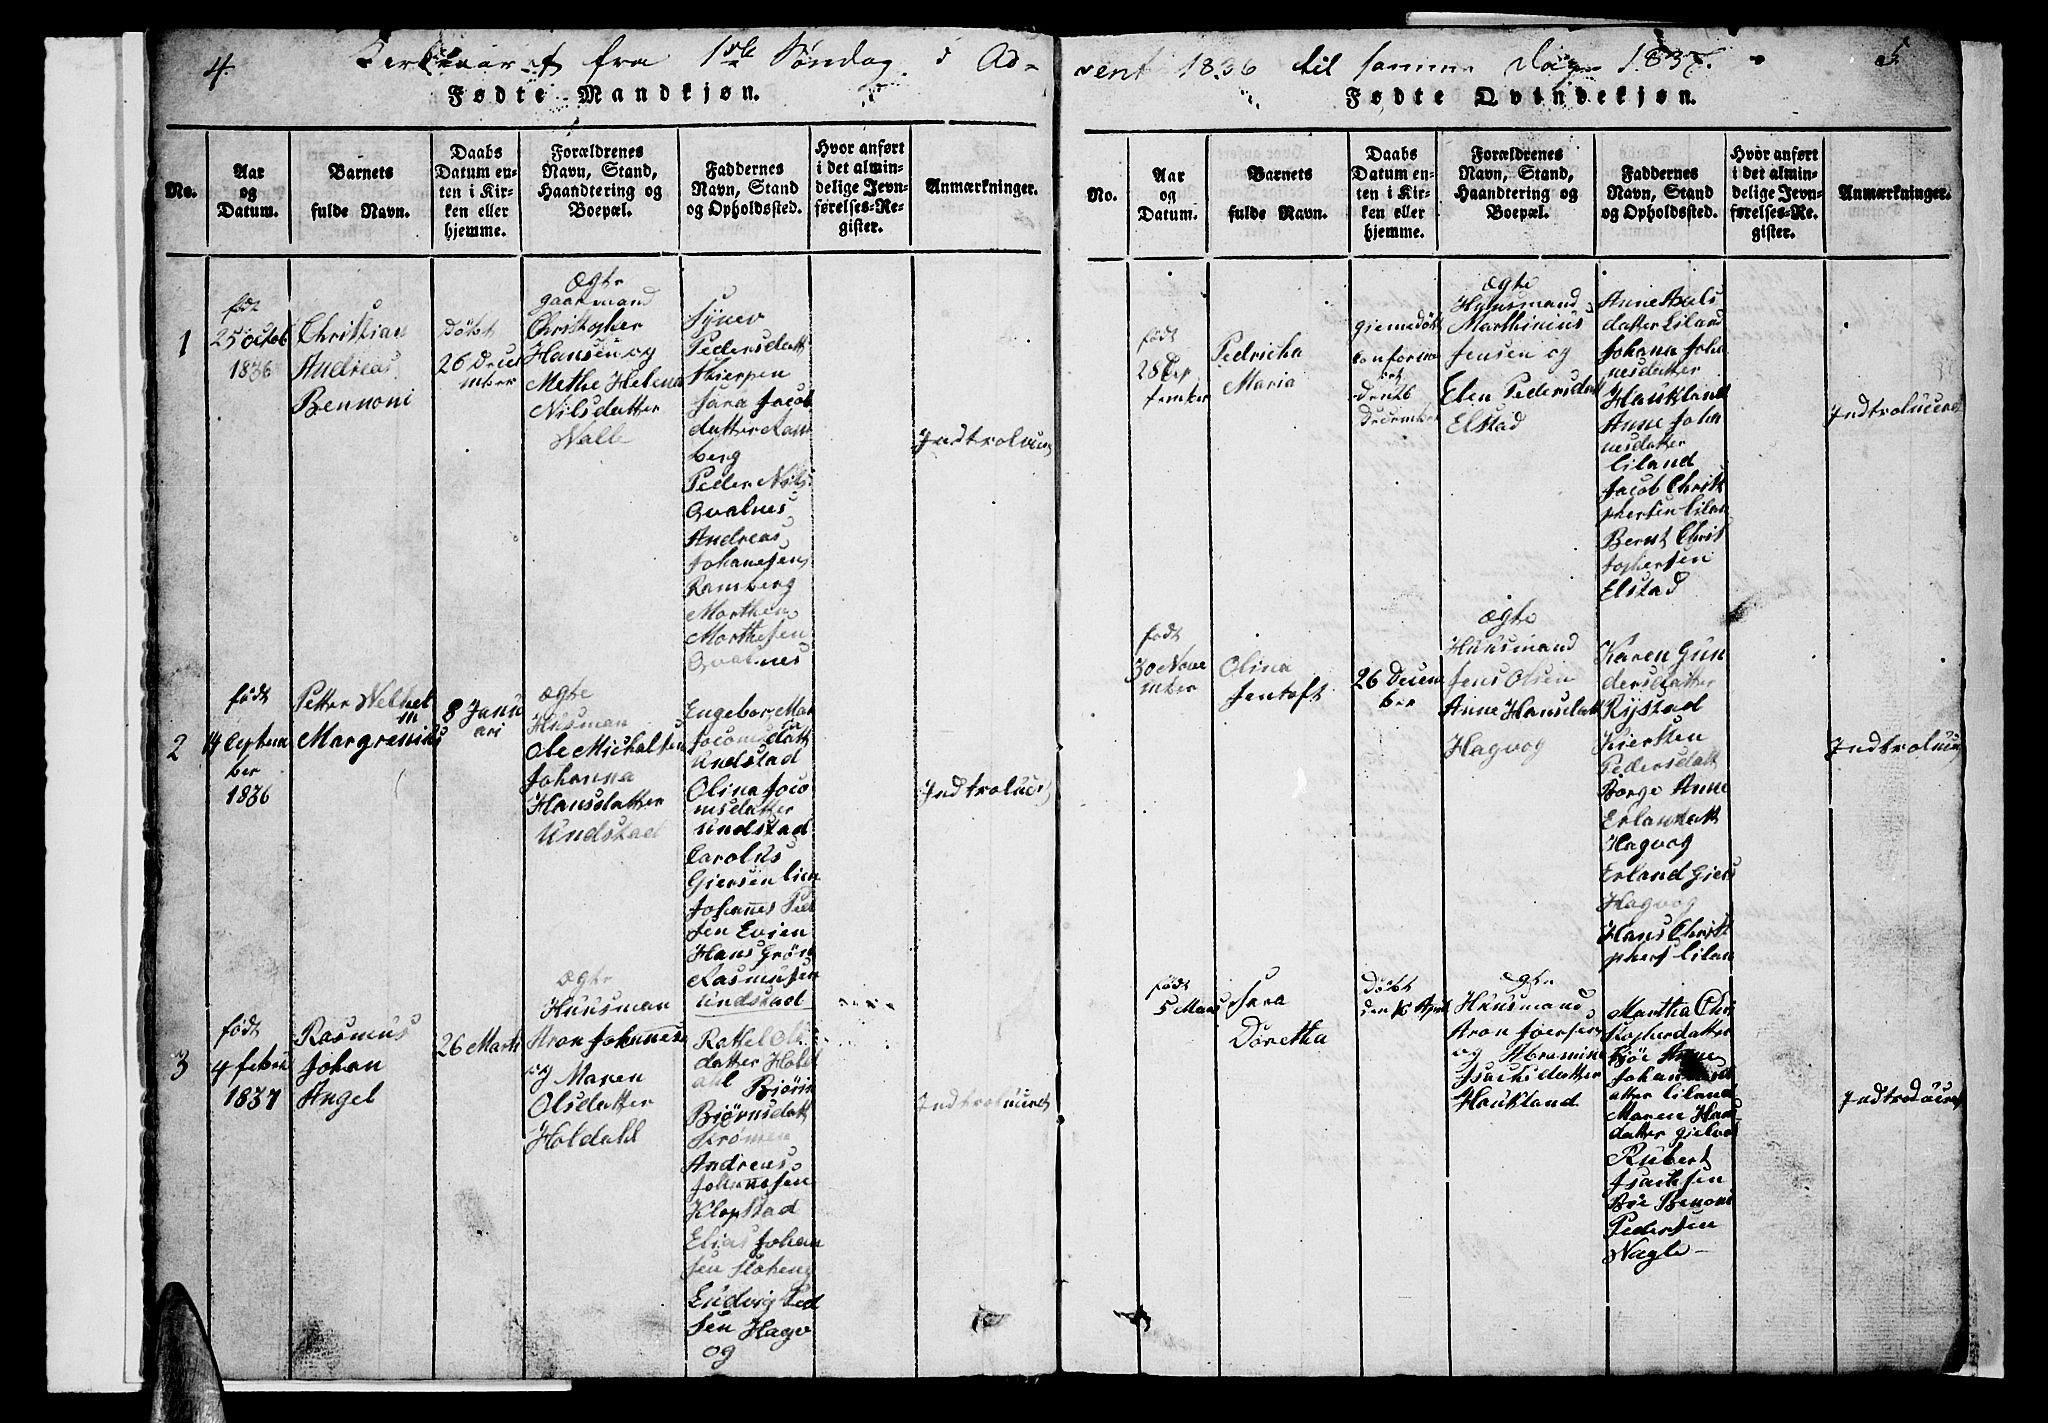 4.
Kirkeaaret fra 1ste Søndag i Ad-
Fødte Mandkjøn.
No.
Aar
og
Datum.
Barnets
fulde Navn.
Daabs
Datum en-
ten i Kir-
ken eller
hjemme.
Forældrenes
Navn, Stand,
Haandtering og
Boepæl.
Faddernes
Navn, Stand
og Opholdssted.
Hvor anført
i det almin-
delige Jevn-
førelses-Re-
gister.
Anmærkninger.
1
født
25 octob
1836
Christian
Andreas
Bennoni
døbt
26 Decem
mber
Ægte
gaarmand
Christopher
Hansen og
Methe Helena
Nilsdatter
Walle
Synev
Pedersdatt
Skierpen
Sara Jacob
datter Ram
berg
Peder Nils
Qvalnes
Andreas
Johanesen
Ramberg
Morthen
Morthesen
Qvalnes
Indtroluceret
2
født
14 Septem
ber
1836
Petter Welhel
m
Margrenius
8 Janu
ari
Ægte
Husman
Ole Michalsen
Johanna
Hansdatter
Undstad
Ingebor Mat
Jocomsdatt
Undstad
Olina Joco
msdatter
Undstad
Carolus
Giersen Lien
Johannes Ped
sen Evjen
Hans Grön
Rasmusen
Undstad
Indtroluceret
3
født
4 febru
1837
Rasmus
Johan
Angel
26 Marti
Ægte
Huusman
Aron Johannese
og Maren
Olsdatter
Holdahl
Rattel Ols
datter Hold
ahl Bjørin
Bjørnsdatt
Strømen
Andreas
Johannesen
Klopstad
Elias Johan
sen
Ludvig Ped
sen Hagv
og
Indtroluceret
vent 1836 til samme Dag 1837.
5
Fødte Qvindekjøn.
No.
Aar
og
Datum.
Barnets
fulde Navn.
Daabs
Datum en-
ten i Kir-
ken eller
hjemme.
Forældrenes
Navn, Stand,
Haandtering og
Boepæl.
Faddernes
Navn, Stand
og Opholdssted.
Hvor anført
i det almin-
delige Jevn-
førelses-Re-
gister.
Anmærkninger.
født
28 Sep
tember
Pedricha
Maria
giemedøt
Conformer
ert
den 26
December
Ægte
Huusmand
Marthinius
Jensen og
Elen Pedersdatt
Elstad
Anne Axels
datter Liland
Johana Joha
nesdatter
Haukland
Anne Joha
nesdatter
Liland
Jacob Christ
phersen Lilan
Bernt Christ
ophersen
Elstad
Indtroluceret
født
30 Nove
mber
Olina
Jentoft
26 Decem
ber
Ægte
Huusmand
Jens Olsen
Anne Hansdatt
Hagvog
Karen Gun
dersdatter
Rystad
Kiersten
Pedersdatt
Borge Anne
Erlandatt
Hagvog
Erland Giers
Hagvog
Hans Christ
phers Lilan
Indtroluceret
født
5 Mars
Sara
Dorethea
Døbt
den 16 April
Ægte
Huusmand
Aron Joersen
og Abremine
Isachsdatter
Haukland
Martha Chri
stopherdatter
Bøe Anne
Johannesd
atter Liland
Maren Han
datter
Rubert
Isachsen
Bøe Benoni
Pedersen
Nagle
Indtroduceret